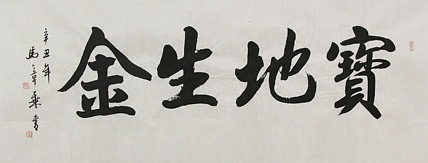 寶地生金
辛丑年
馬章乘書